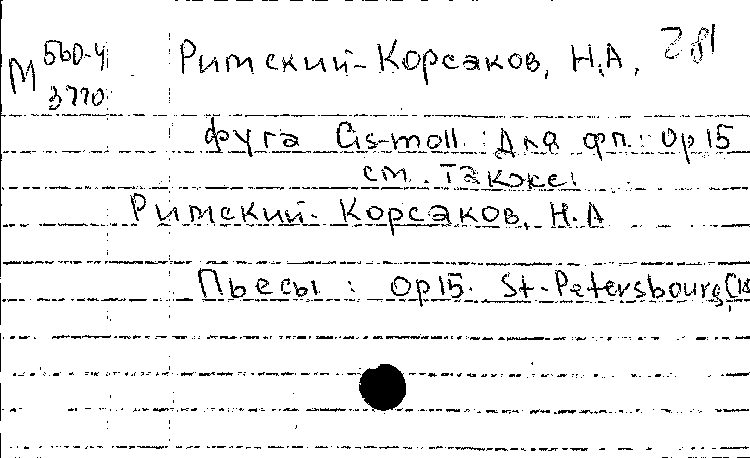 М 560-4
3770
Римский-Корсаков, Н.А, 281
Фуга Cis-moll : Для фп. : Op 15
см. также:
Римский-Корсаков, Н.А
Пьесы : Op 15. St-Petersbourg, [18